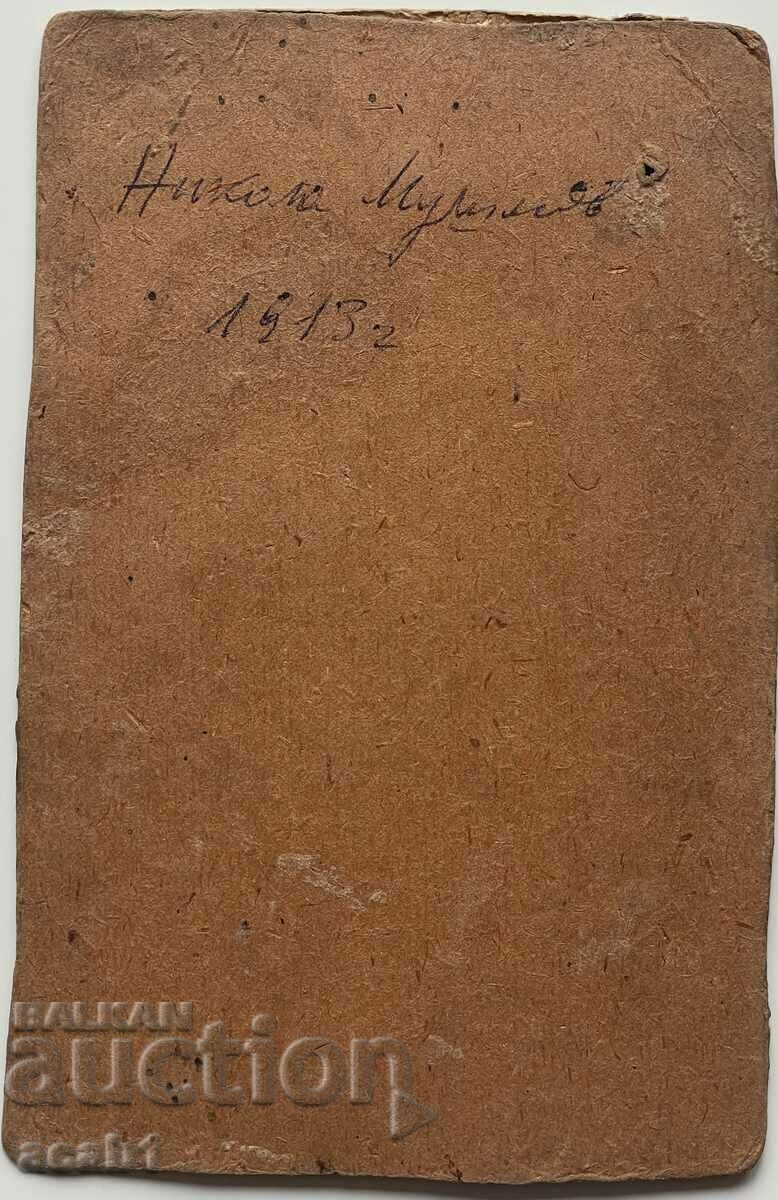 Никола
1913 г
BALKAN
auction
acab1